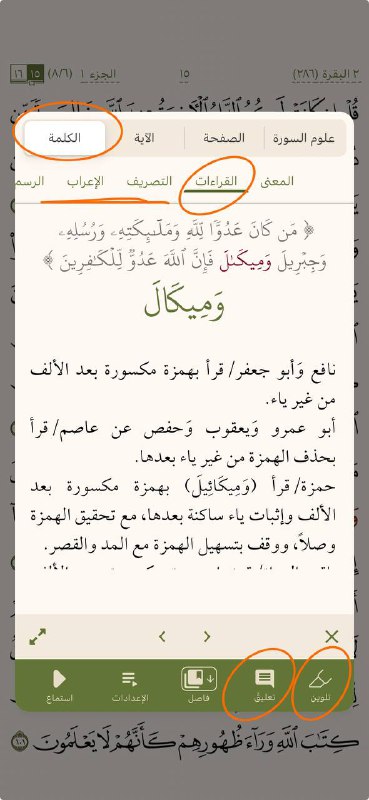 ٢ البقرة (٢٨٦)
١٥
الجزء ١ (٨/٦)
١٥ ١٦
علوم السورة
الصفحة
الآية
الكلمة
المعنى
القراءات
التصريف
الإعراب
الرسم
﴿ مَن كَانَ عَدُوًّا لِّلَّهِ وَمَلَـٰٓئِكَتِهِۦ وَرُسُلِهِۦ
وَجِبْرِيلَ وَمِيكَىٰلَ فَإِنَّ ٱللَّهَ عَدُوٌّ لِّلْكَـٰفِرِينَ ﴾
وَمِيكَالَ
نافع وَأبو جعفر/ قرأ بهمزة مكسورة بعد الألف
من غير ياء.
أبو عمرو وَيعقوب وَحفص عن عاصم/ قرأ
بحذف الهمزة من غير ياء بعدها.
حمزة/ قرأ (وَمِيكَائِيلَ) بهمزة مكسورة بعد
الألف وإثبات ياء ساكنة بعدها، مع تحقيق الهمزة
وصلاً، ووقف بتسهيل الهمزة مع المد والقصر.
تلوين
تعليق
فاصل
الإعدادات
استماع
كِتَـٰبَ ٱللَّهِ وَرَآءَ ظُهُورِهِمْ كَأَنَّهُمْ لَا يَعْلَمُونَ ١٠١